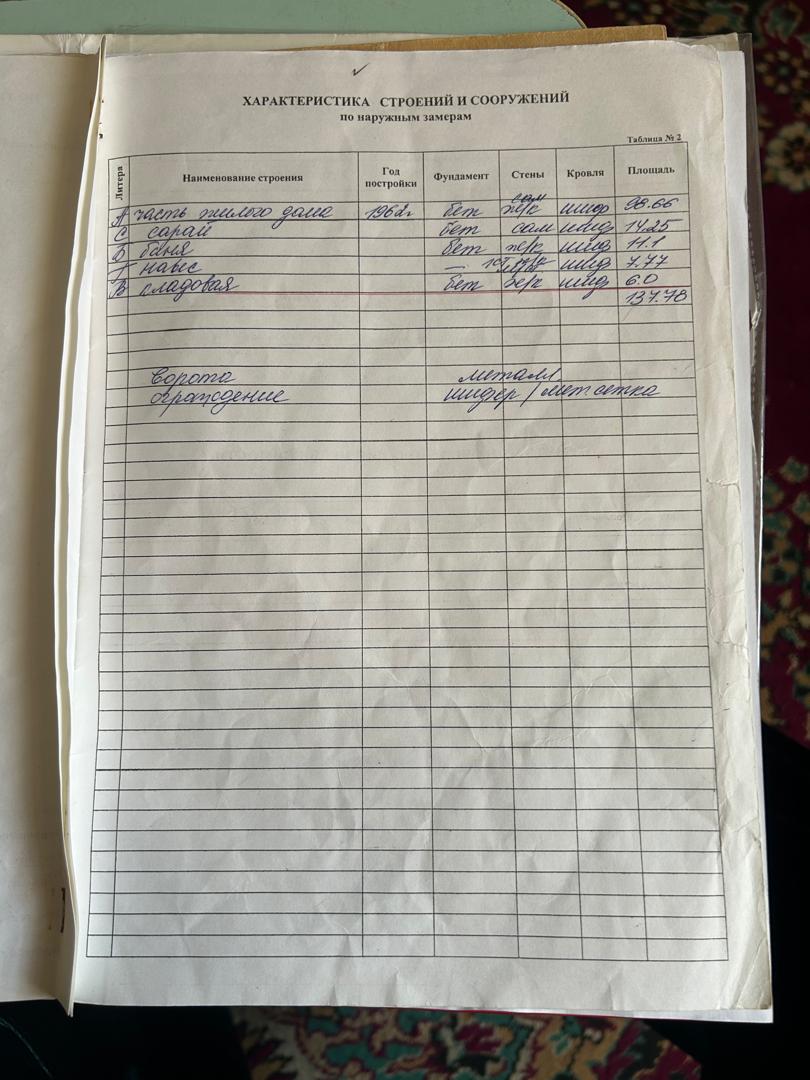 ХАРАКТЕРИСТИКА СТРОЕНИЙ И СООРУЖЕНИЙ
по наружным замерам
Таблица № 2
Литера Наименование строения Год постройки Фундамент Стены Кровля Площадь
А часть жилого дома 1962г бет сам жрк шиф 98.66
С сарай бет сам шиф 14.25
Б баня бет жрк шиф 11.1
Г навес — шиф 7.77
В кладовая бет жрк шиф 6.0
137.78
Ворота металл
ограждение шифер / мет. сетка